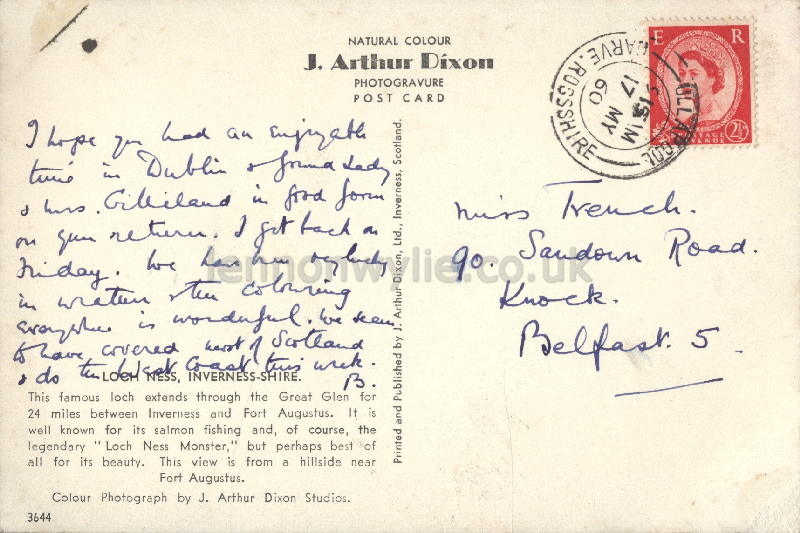 NATURAL COLOUR
J. Arthur Dixon
PHOTOGRAVURE
POST CARD
E R
POSTAGE
REVENUE
2½D
ULLAPOOL
GARVE. ROSSSHIRE
17 MY
60
I hope you had an enjoyable
time in Dublin & found Lady
& Mrs. Gilliland in good form
on your return. I get back on
Friday. We have been very lucky
in weather & the colouring
everywhere is wonderful. We seem
to have covered most of Scotland
& do the West Coast this week.
B.
Miss Trench.
90. Sandown Road.
Knock.
Belfast. 5.
lennonwylie.co.uk
Printed and Published by J. Arthur Dixon, Ltd., Inverness, Scotland.
LOCH NESS, INVERNESS-SHIRE.
This famous loch extends through the Great Glen for
24 miles between Inverness and Fort Augustus. It is
well known for its salmon fishing and, of course, the
legendary "Loch Ness Monster," but perhaps best of
all for its beauty. This view is from a hillside near
Fort Augustus.
Colour Photograph by J. Arthur Dixon Studios.
3644